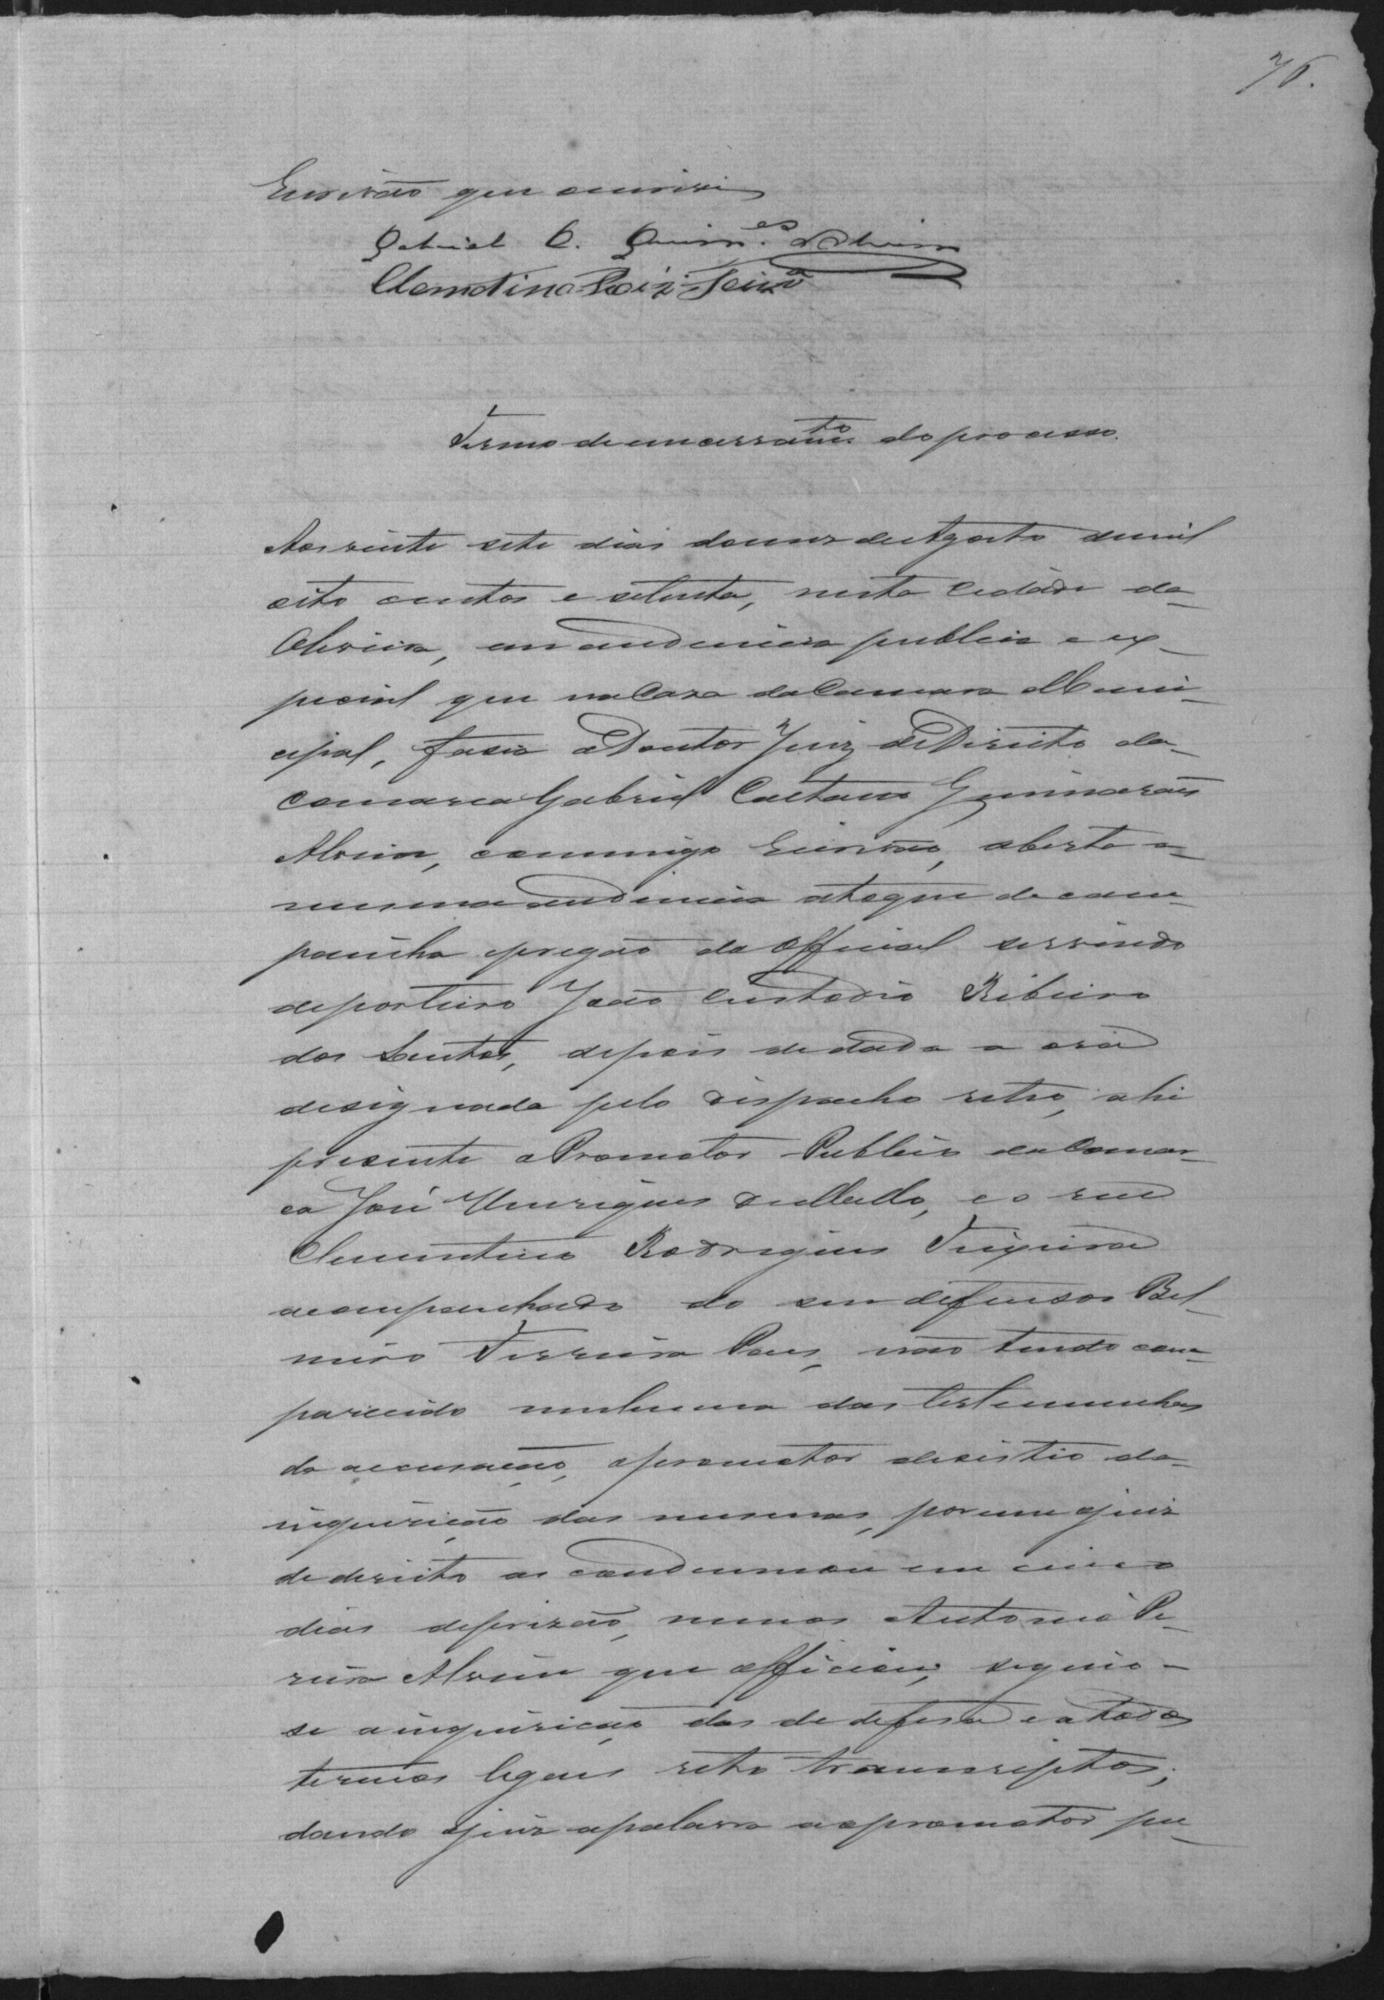 76.
Escrivão que escrevi
Gabriel C. Guim.es Alvim
Clemdino Roiz Teixr.a
Termo de encerram.to do processo.
Aos vinte sete dias do mez de Agosto de mil
oito centos e setenta, nesta Cidade da
Oliveira, em audiencia publica e ex-
pecial que na Casa da Camara Muni-
cipal, fasia o Doutor Juiz de Direito da
comarca Gabriel Caetano Guimarães
Alvim, commigo Escrivão, aberta a
mesma audiencia a toque de cam-
painha e pregão do official servindo
de porteiro João Custodio Ribeiro
dos Santos, depois de dada a ora
designada pelo dispacho retro, ahi
presente o Promotor Publico da Comar-
ca José Henriques de Mello, e o reu
Clementino Rodrigues Teixeira
acompanhado do seu defensor Bel-
miro Ferreira Paes, não tendo com-
parecido nenhuma das testemunhas
da accusação, o promotor desistio da
inquirição das mesmas, porem o juiz
de direito as condemnou em cinco
dias de prizão, menos Antonio Pe-
reira Alvim que officiou, seguio-
se a inquirição das de defesa e a todos
termos legaes retro transcriptos;
dando o juiz a palavra ao promotor pu-